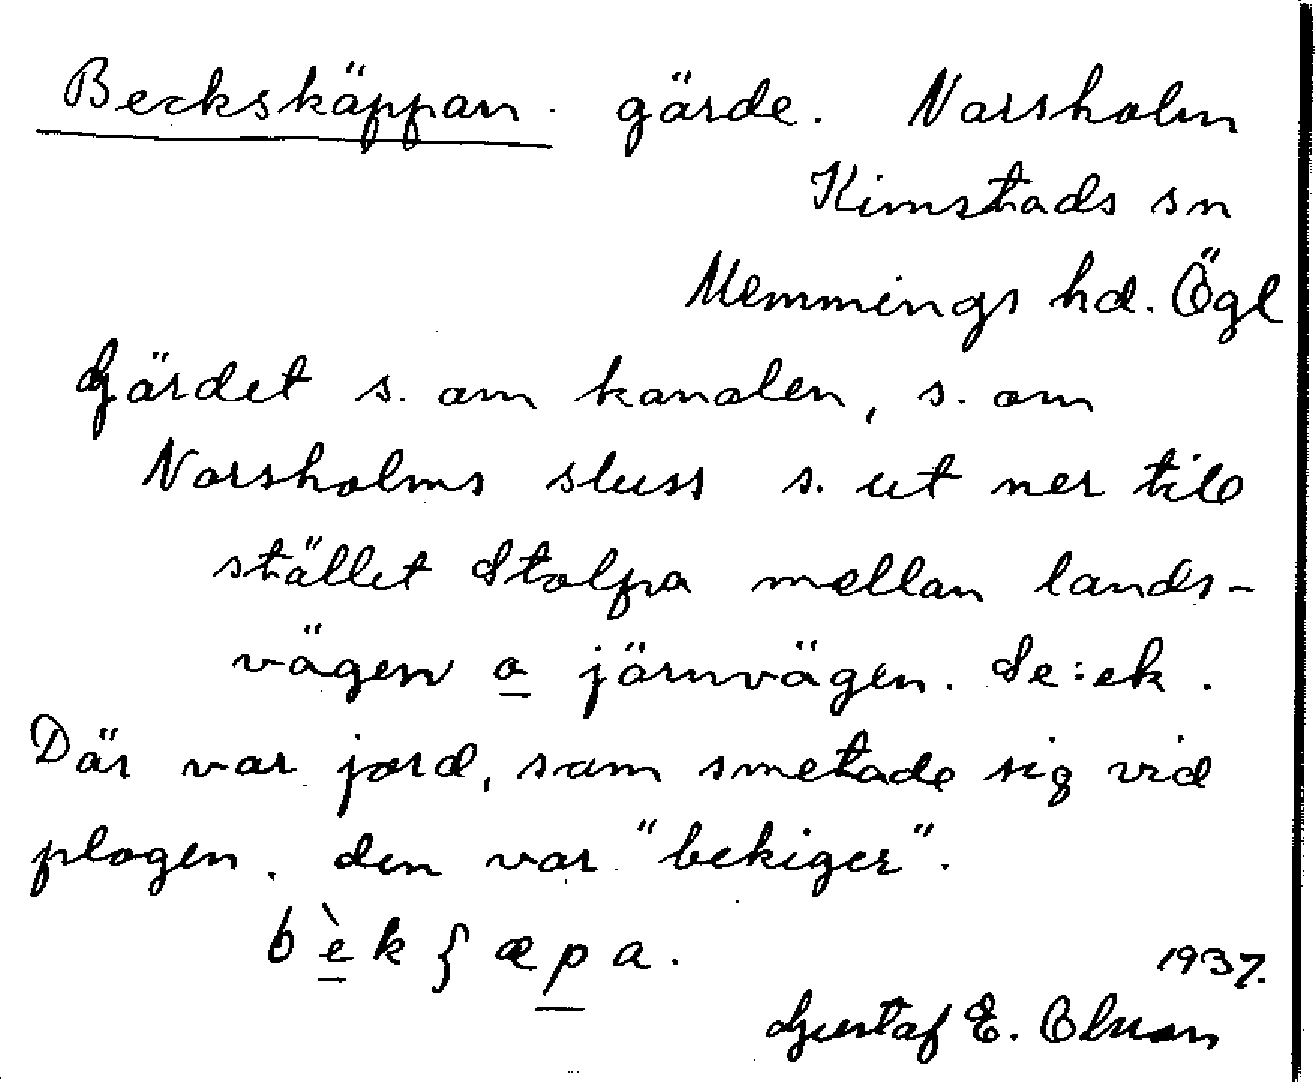 Beckskäppan. gärde. Norsholm
Kimstads sn
Memmings hd. Ögl
Gärdet s. om kanalen, s. om
Norsholms sluss s. ut ner till
stället Stolpa mellan lands-
vägen o järnvägen. Se: ek.
Där var jord, som smetade sig vid
plogen. den var "bekiger".
bèkʃæpa.
1937.
Gustaf E.